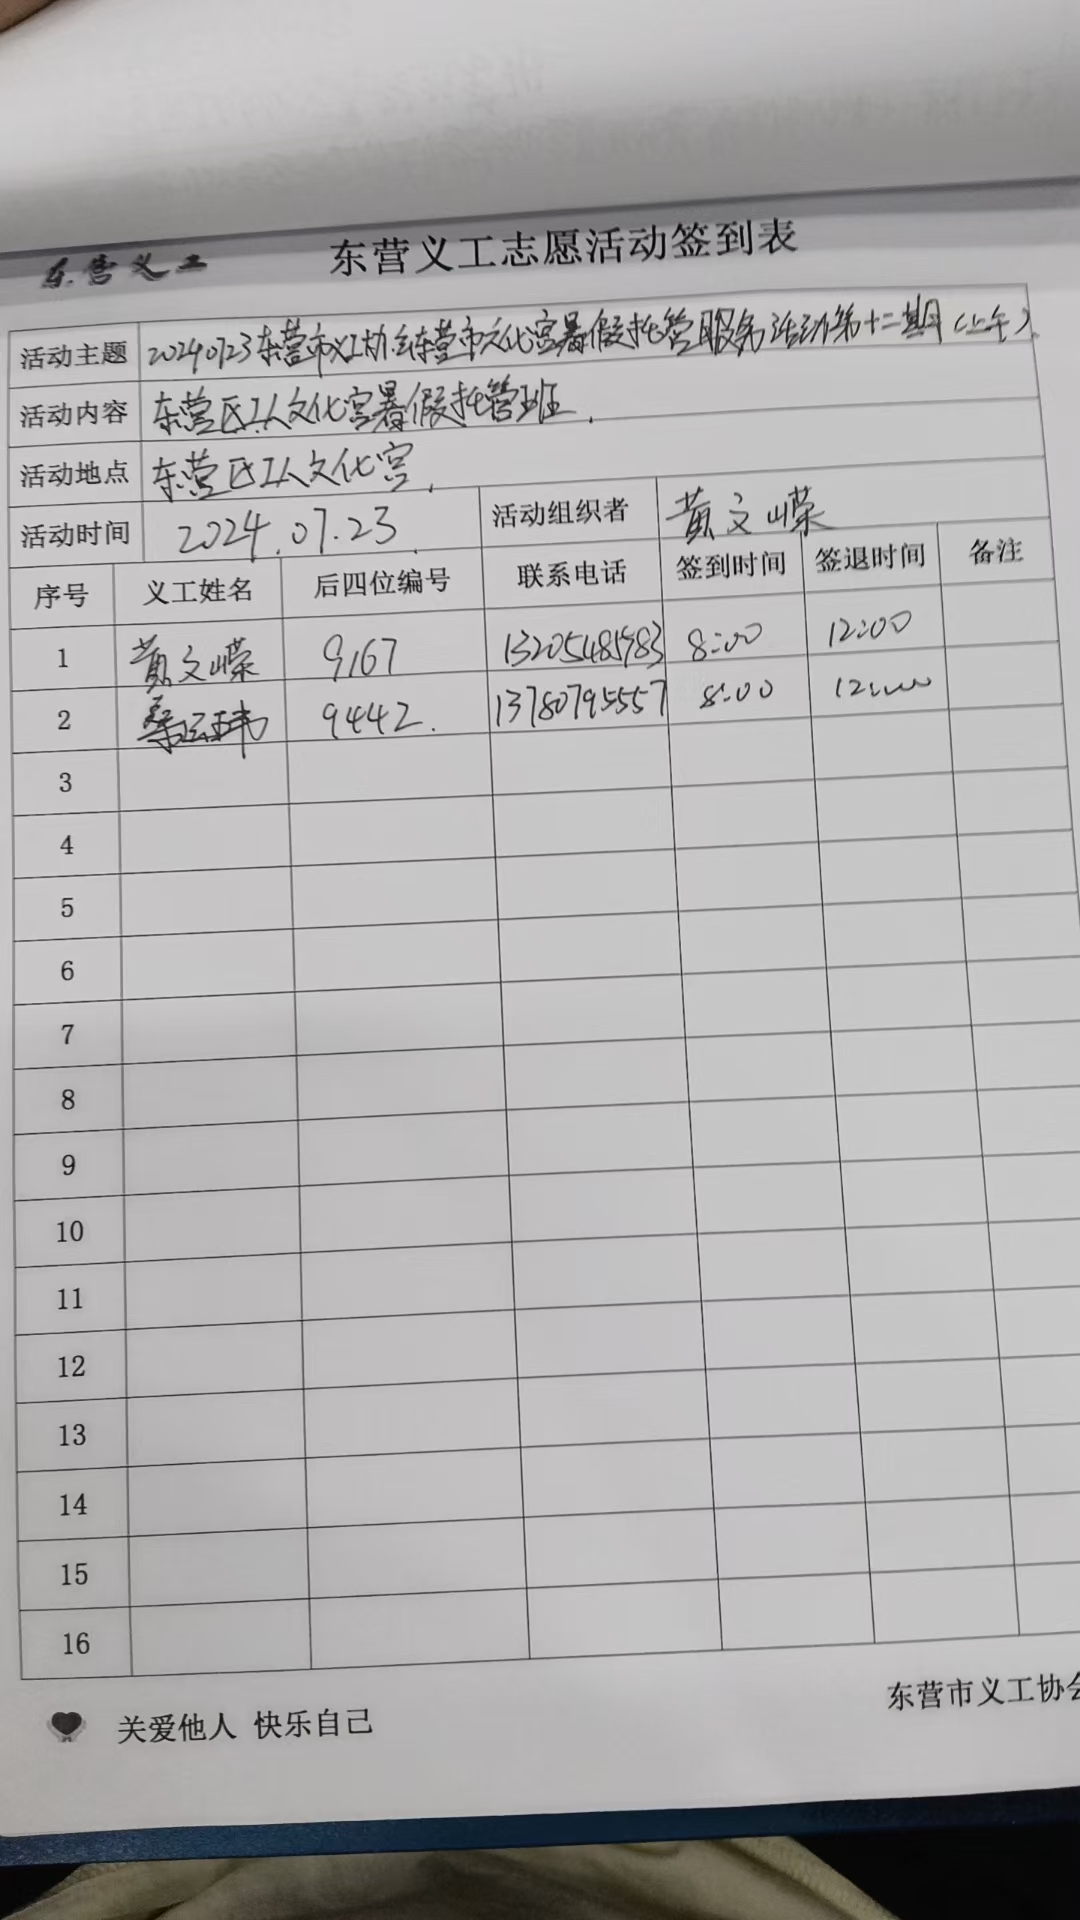 东营义工
东营义工志愿活动签到表
活动主题 20240723东营市义工协会东营市文化宫暑假托管服务活动第十二期(上午)
活动内容 东营区工人文化宫暑假托管班.
活动地点 东营区工人文化宫.
活动时间 2024.07.23. 活动组织者 黄文嵘
序号 义工姓名 后四位编号 联系电话 签到时间 签退时间 备注
1 黄文嵘 9167 13205481983 8:00 12:00
2 9442. 13780795557 8:00 12:00
3
4
5
6
7
8
9
10
11
12
13
14
15
16
关爱他人 快乐自己
东营市义工协会